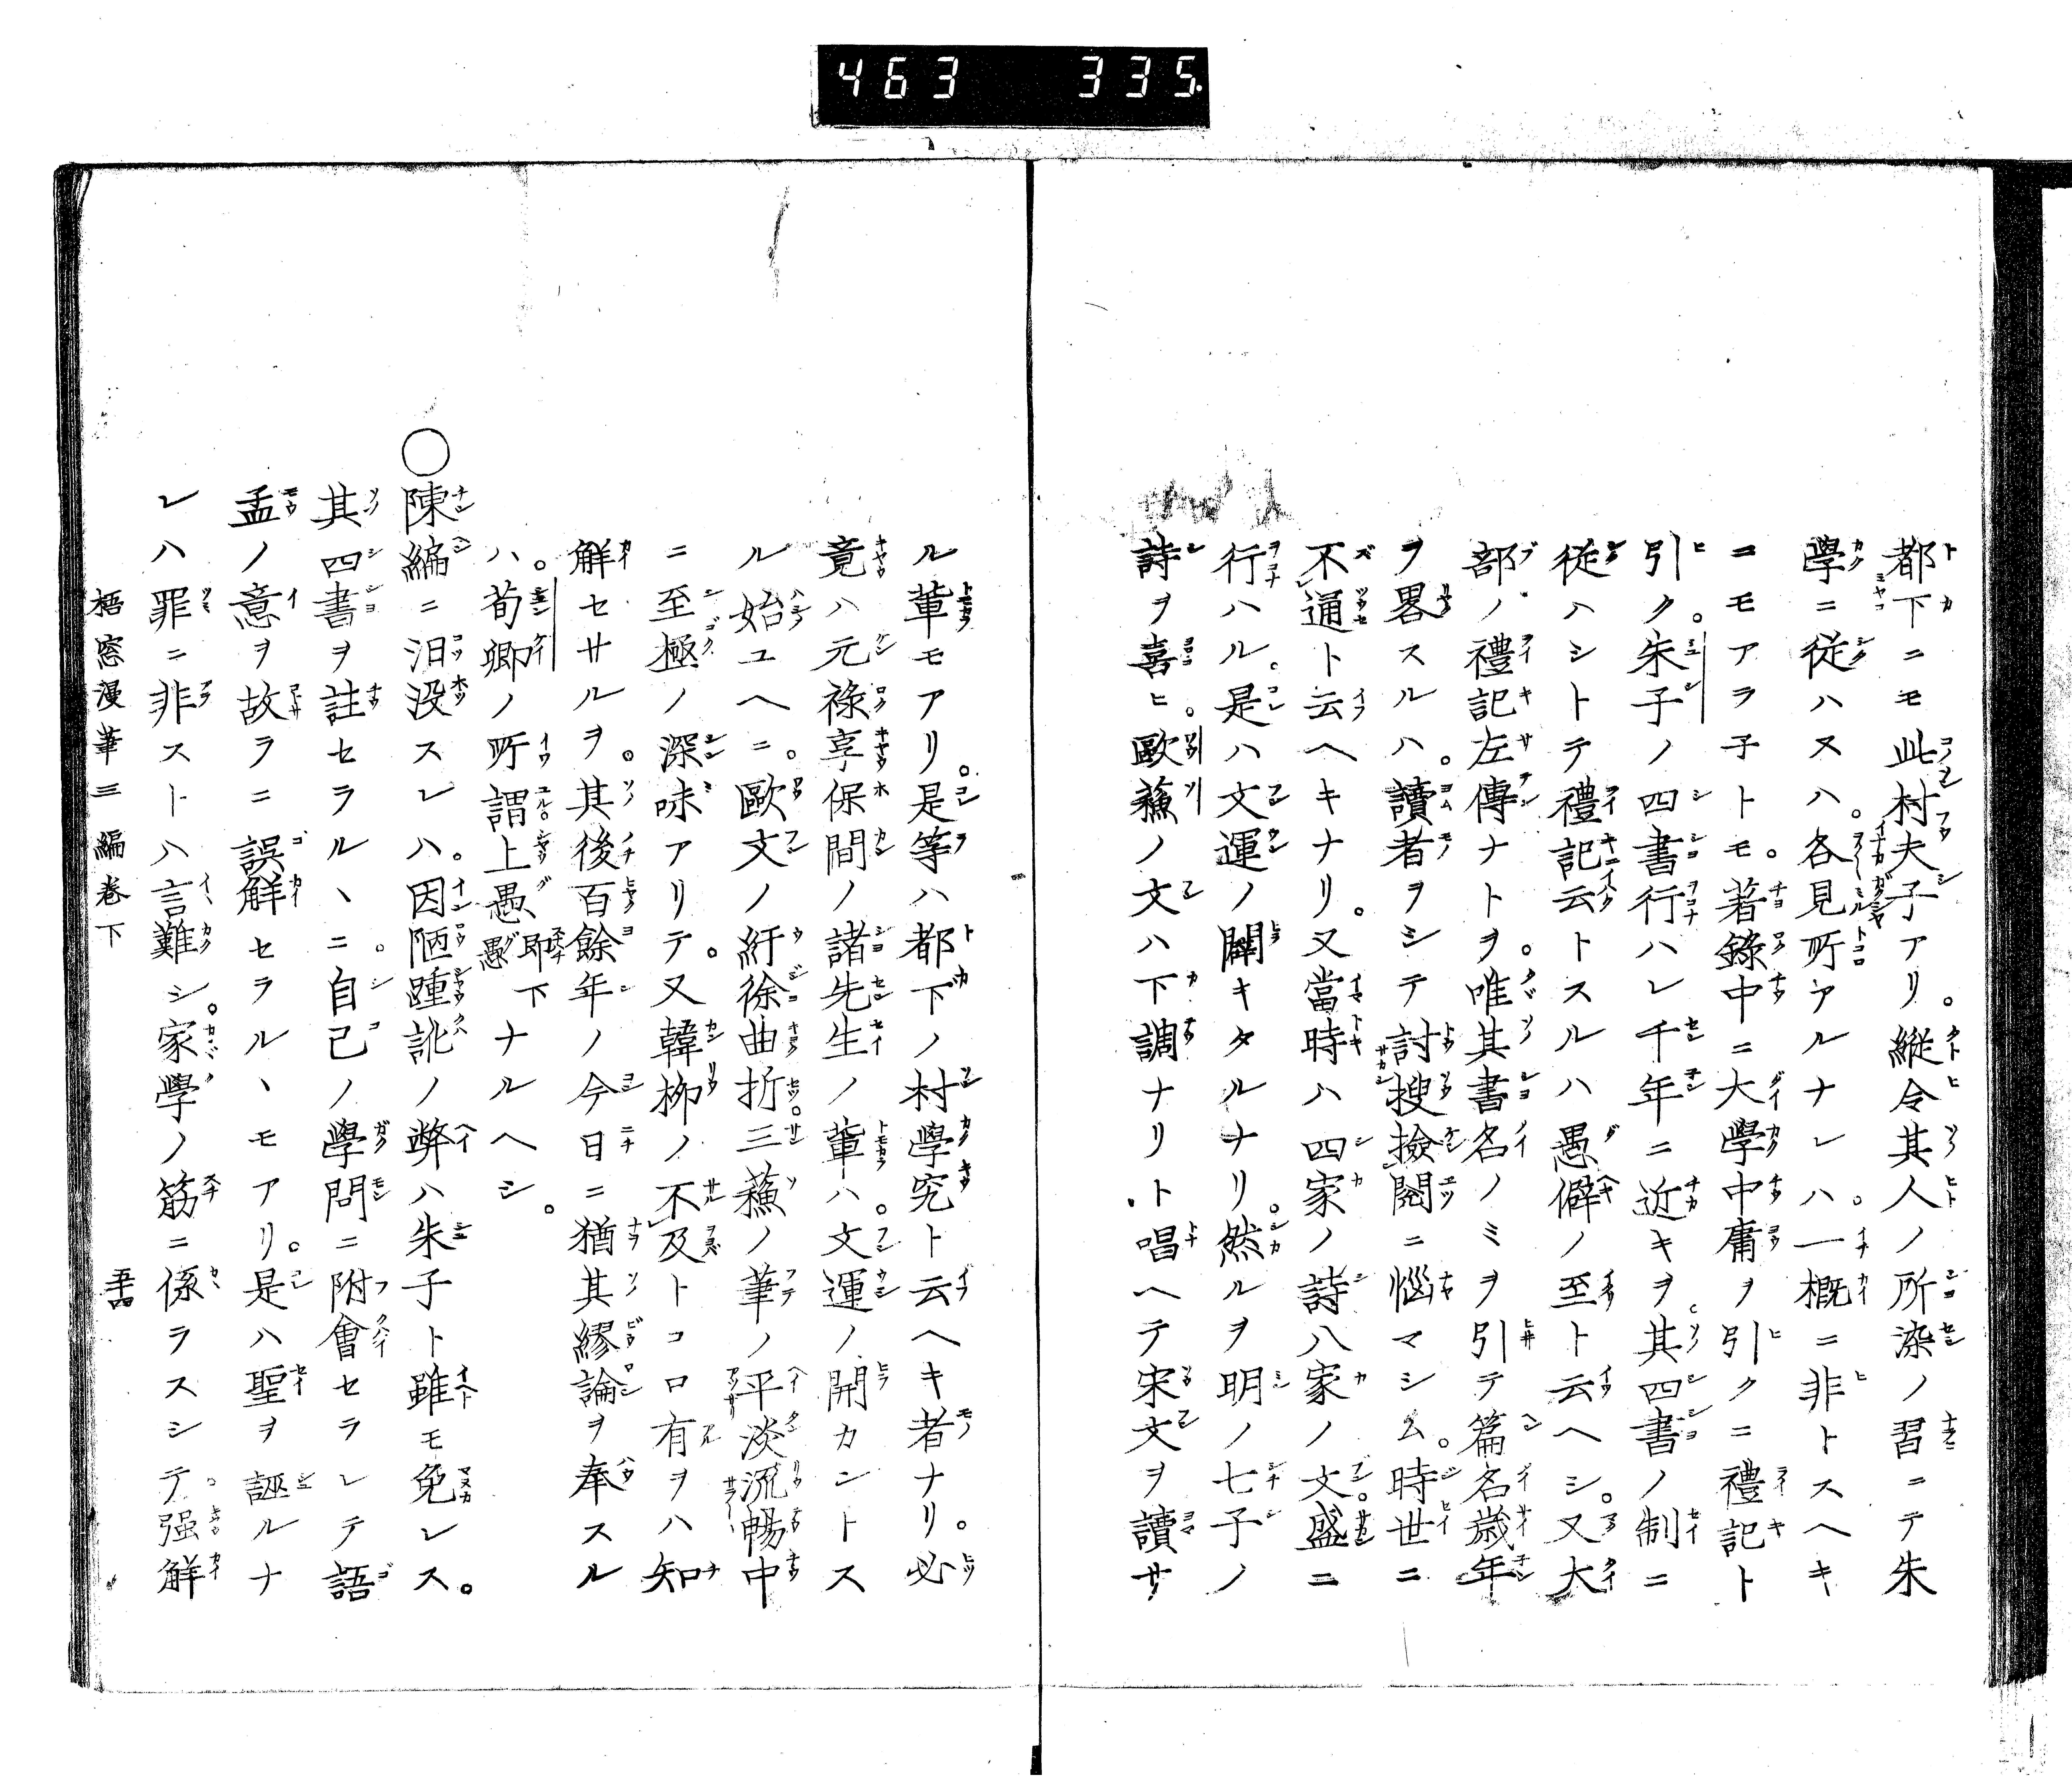 463 335
都下ニモ此村夫子アリ。縦令其人ノ所染ノ習ニテ朱
學ニ従ハスハ。各見所アルナレハ。一概ニ非トスヘキ
ニモアラ子トモ。著錄中ニ大學中庸ヲ引クニ禮記ト
引ク。朱子ノ四書行ハレ千年ニ近キヲ。其四書ノ制ニ
従ハシトテ禮記云トスルハ愚僻ノ至ト云ヘシ。又大
部ノ禮記左傳ナトヲ。唯其書名ノミヲ引テ篇名歳年
ヲ畧スルハ。讀者ヲシテ討搜撿閱ニ惱マシム。時世ニ
不レ通ト云ヘキナリ。又當時ハ四家ノ詩八家ノ文。盛ニ
行ハル。是ハ文運ノ闢キタルナリ。然ルヲ明ノ七子ノ
詩ヲ喜ヒ。歐蘓ノ文ハ下調ナリト唱ヘテ宋文ヲ讀サ
ル軰モアリ。是等ハ都下ノ村學究ト云ヘキ者ナリ。必
竟ハ元祿享保間ノ諸先生ノ軰ハ。文運ノ開カントス
ル始ユヘニ。歐文ノ紆徐曲折。三蘓ノ筆ノ平淡流暢中
ニ至極ノ深味アリテ。又韓柳ノ不レ及トコロ有ヲハ知
解セサルヲ。其後百餘年ノ今日ニ猶其繆論ヲ奉スル
ハ。荀卿ノ所謂上愚、即下愚ナルヘシ。
○陳編ニ汨没スレハ。因陋踵訛ノ弊ハ朱子ト雖モ免レス。
其四書ヲ註セラルヽニ。自己ノ學問ニ附會セラレテ語
孟ノ意ヲ故ラニ誤解セラルヽモアリ。是ハ聖ヲ誣ルナ
レハ罪ニ非ストハ言難シ。家學ノ筋ニ係ラスシテ。强解
梧窓漫筆三編卷下 五十四